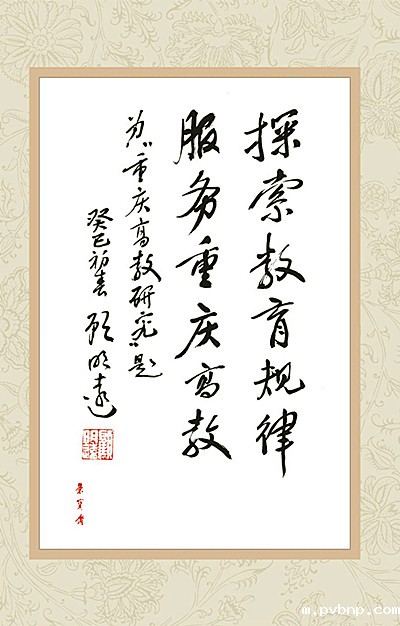 探索教育规律
服务重庆高教
为“重庆高教研究”题
癸巳初春 顾明远
m.pvbnp.com